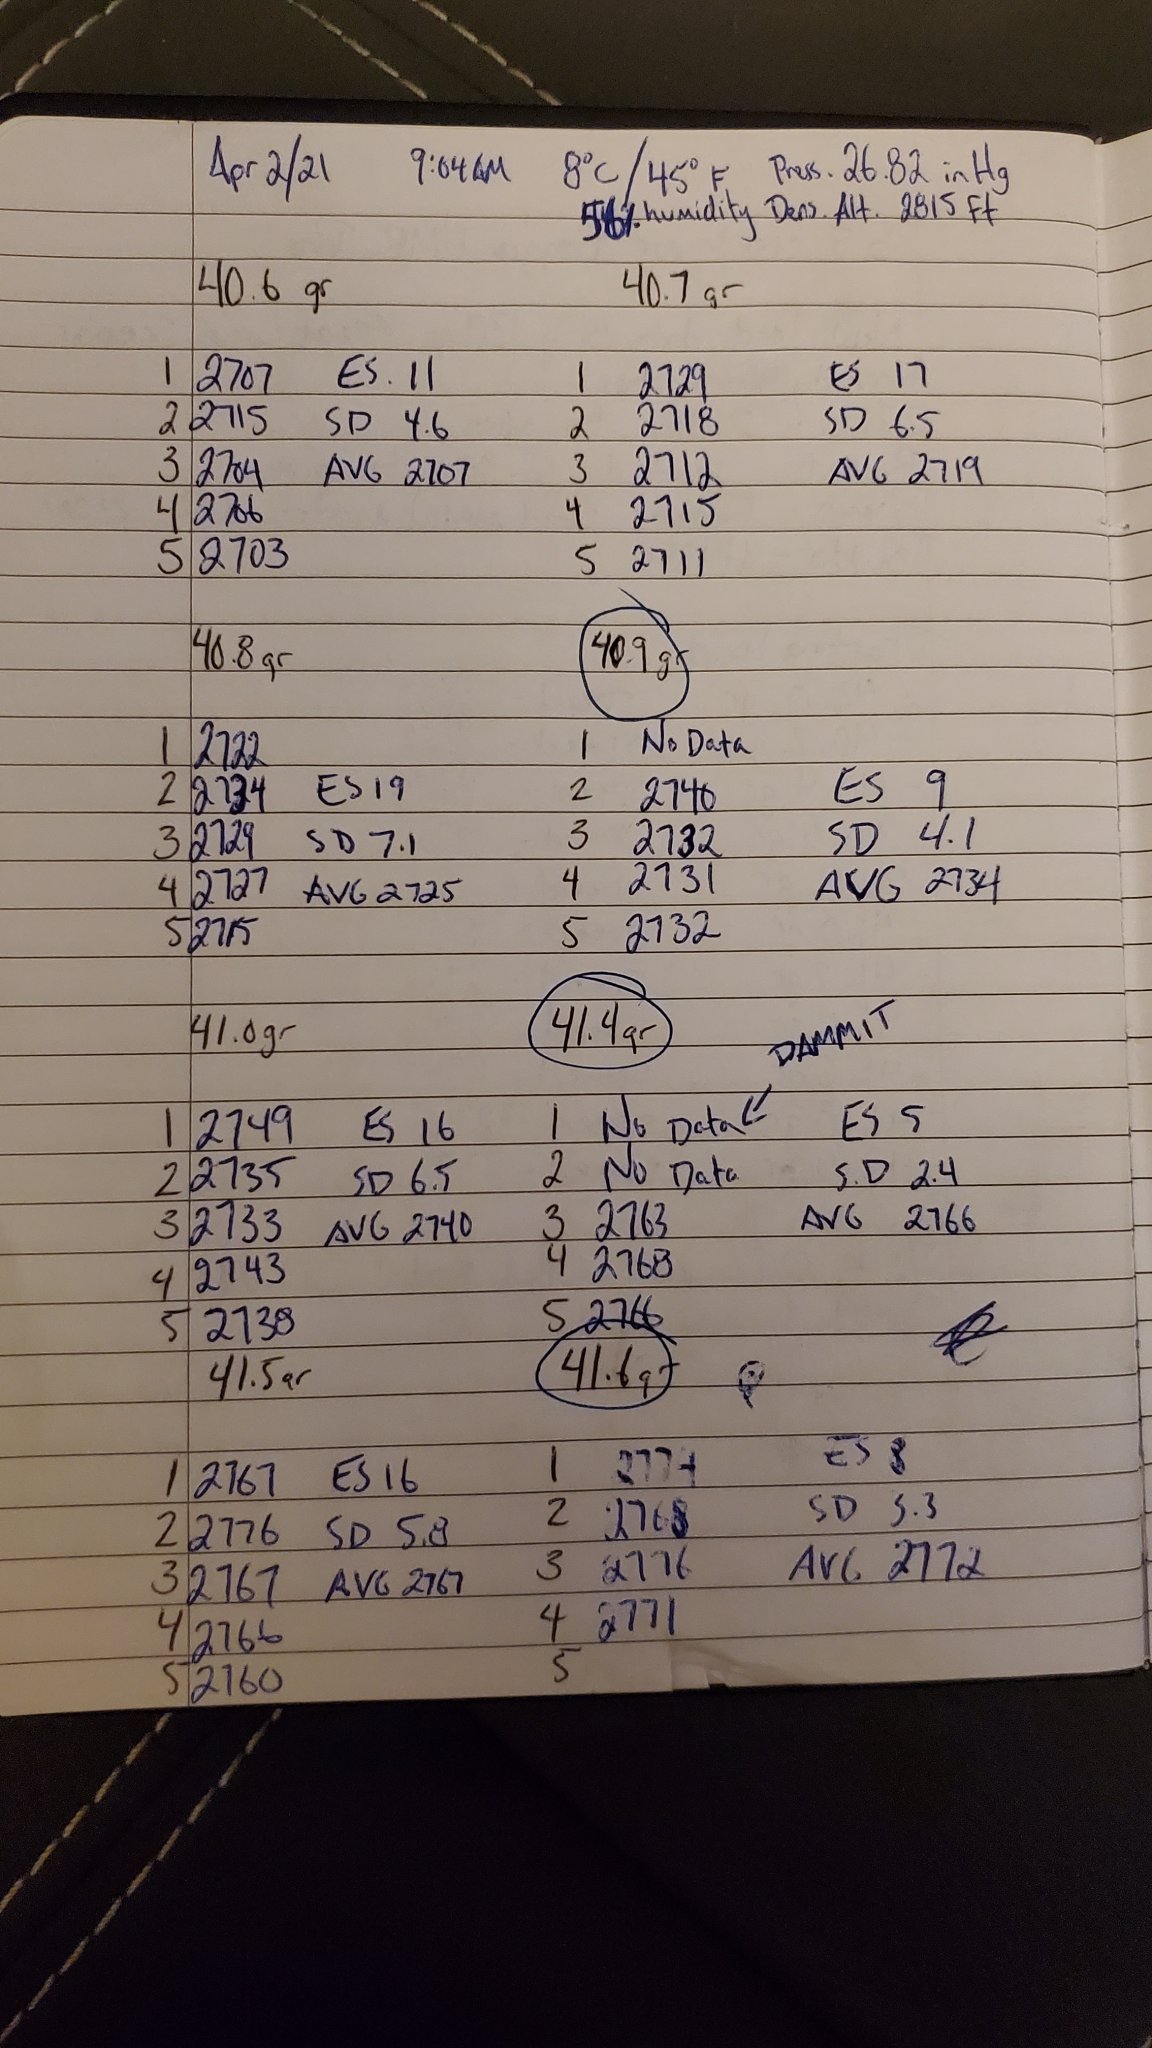 Apr 2/21 9:04AM 8°C/45°F Press. 26.82 inHg
56% humidity Dens. Alt. 2815 Ft
40.6 gr 40.7 gr
1 2707 ES. 11 1 2729 ES 17
2 2715 SD 4.6 2 2718 SD 6.5
3 2704 AVG 2707 3 2712 AVG 2719
4 2706 4 2715
5 2703 5 2711
40.8 gr 40.9 gr
1 2722 1 No Data
2 2734 ES 19 2 2740 ES 9
3 2729 SD 7.1 3 2732 SD 4.1
4 2727 AVG 2725 4 2731 AVG 2734
5 2715 5 2732
41.0gr 41.4gr DAMMIT
1 2749 ES 16 1 No Data ES 5
2 2735 SD 6.5 2 No Data S.D 2.4
3 2733 AVG 2740 3 2763 AVG 2766
4 2743 4 2768
5 2738 5 2766
41.5gr 41.6gr
1 2767 ES 16 1 ES 8
2 2776 SD 5.8 2 2768 SD 3.3
3 2767 AVG 2767 3 2776 AVG 2772
4 2766 4 2771
5 2760 5